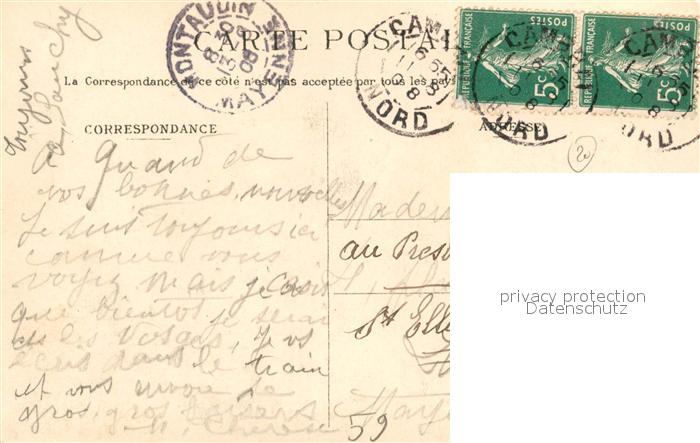 CARTE POSTALE
La Correspondance de ce côté n'est pas acceptée par tous les pays
CORRESPONDANCE
ADRESSE
MONTAUDIN
MAYENNE
CAMB
NORD
REPUBLIQUE FRANÇAISE
POSTES
5c
REPUBLIQUE FRANÇAISE
POSTES
5c
20
Toujours
Quand de
vos bonnes nouvelles
Je suis toujours ici
comme vous
voyez mais je crois
que bientot je serai
dans les Vosges, Je vs
écris dans le train
et vous envoie de
gros, gros baisers
Madem
au Presb
St Elle
May
59
privacy protection
Datenschutz